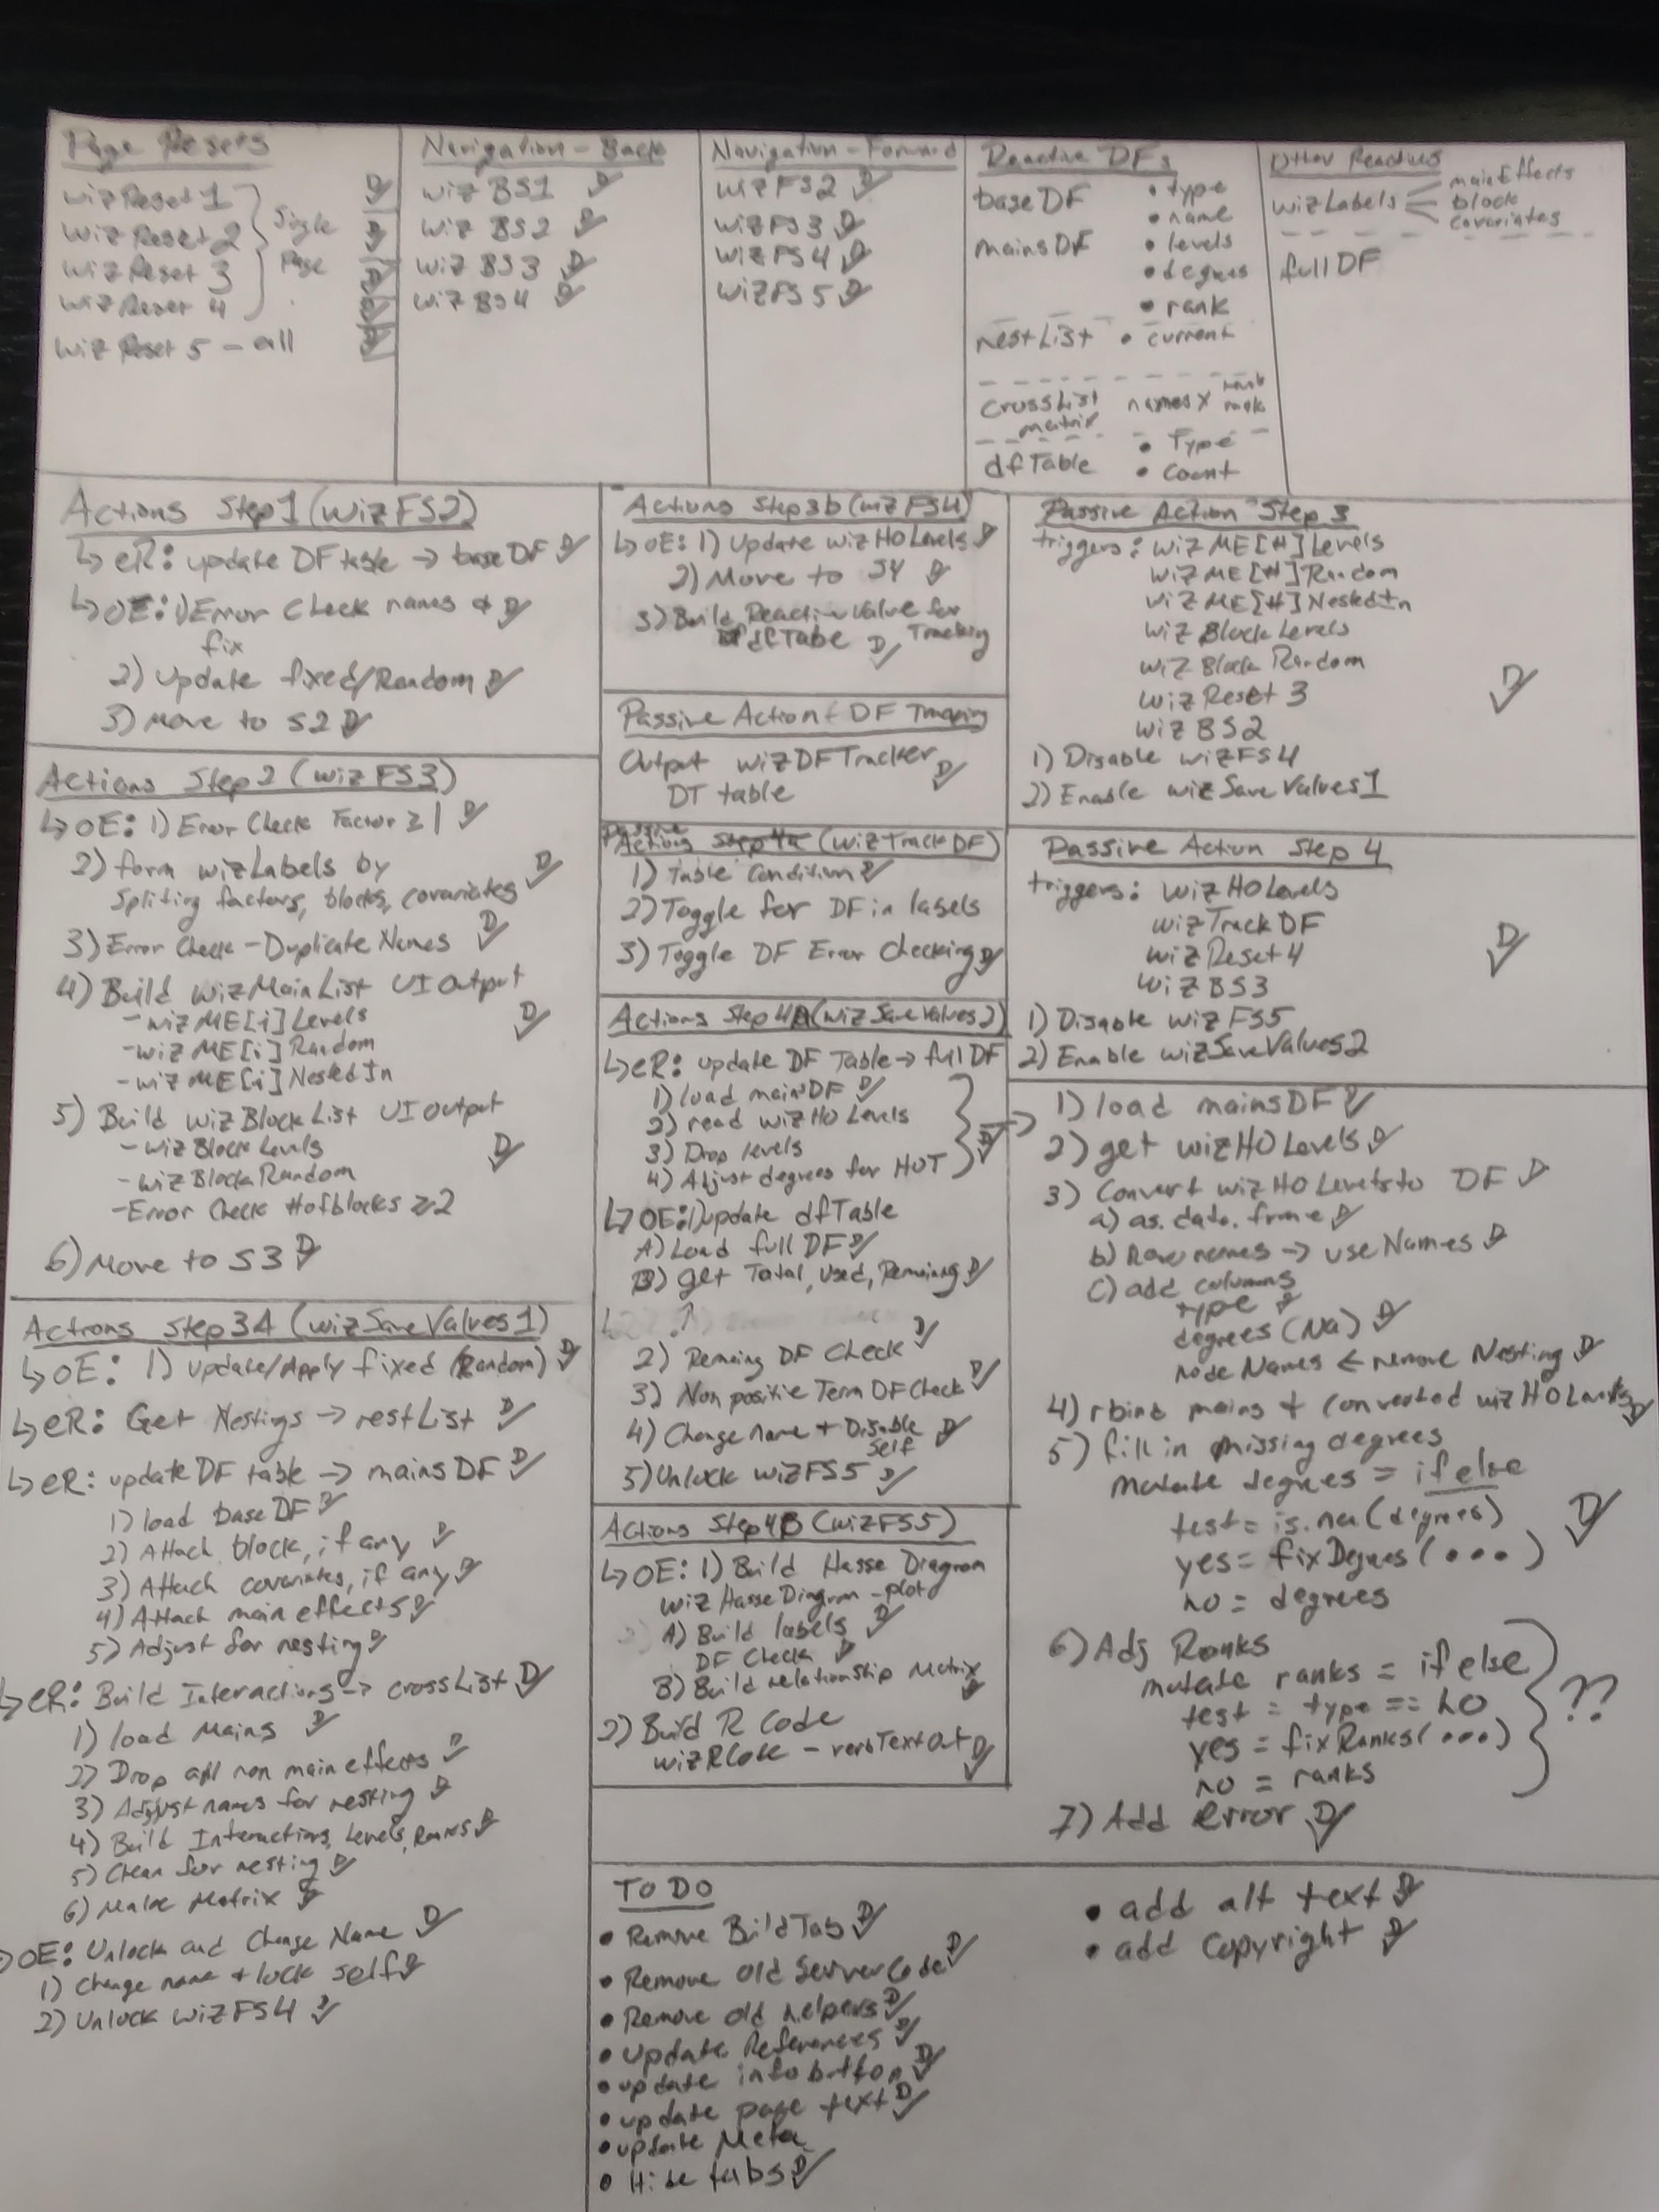 Page Resets
wizReset 1
wizReset 2
wizReset 3
wizReset 4
Single
Page
wizReset 5 - all
Navigation - Back
wizBS1 D
wizBS2 D
wizBS3 D
wizBS4 D
Navigation - Forward
wizFS2 D
wizFS3 D
wizFS4 D
wizFS5 D
Reactive DFs
baseDF
mainsDF
• type
• name
• levels
• degrees
• rank
nestList • current
crossList names x
matrix rank
dfTable • Type
• Count
Other Reactives
wizLabels mainEffects
block
covariates
fullDF
Actions Step1 (wizFS2)
↳ eR: update DF table → baseDF D
↳ OE: 1) Error Check names & D
fix
2) update fixed/Random D
3) Move to S2 D
Actions Step 2 (wizFS3)
↳ OE: 1) Error Check Factor ≥ 1 D
2) form wizLabels by D
Spliting factors, blocks, covariates
3) Error Check - Duplicate Names D
4) Build wizMainList UI Output
- wizME[i]Levels D
- wizME[i]Random
- wizME[i]NestedIn
5) Build wizBlockList UI Output
- wizBlockLevels D
- wizBlockRandom
- Error Check #ofblocks ≥ 2
6) Move to S3 D
Actions Step3A (wizSaveValues1)
↳ OE: 1) update/Apply fixed (Random) D
↳ eR: Get Nestings → nestList D
↳ eR: update DF table → mainsDF D
1) load baseDF D
2) Attach block, if any D
3) Attach covariates, if any D
4) Attach main effects D
5) Adjust for nesting D
↳ eR: Build Interactions → crossList D
1) load Mains D
2) Drop all non main effects D
3) Adjust names for nesting D
4) Build Interactions, Levels, Ranks D
5) Clean for nesting D
6) Make Matrix D
OE: Unlock and Change Name D
1) Change name + lock self D
2) Unlock wizFS4 D
Actions Step3b (wizFS4)
↳ OE: 1) Update wizHOLevels D
2) Move to S4 D
3) Build Reactive Value for
dfTabe D Tracking
Passive Action - DF Tracking
Output wizDFTracker D
DT table
Passive
Actions Step 4a (wizTrackDF)
1) Table Condition D
2) Toggle for DF in labels
3) Toggle DF Error Checking D
Actions Step 4A (wizSaveValues2)
↳ eR: update DF Table → fullDF
1) load mainDF D
2) read wizHOLevels
3) Drop levels D
4) Adjust degrees for HOT
↳ OE: 1) update dfTable
A) Load fullDF D
B) get Total, Used, Remaining D
2) Remaing DF Check D
3) Non positie Term DF Check D
4) Change name + Disable D
Self
5) Unlock wizFS5 D
Actions Step4B (wizFS5)
↳ OE: 1) Build Hasse Diagram
wizHasseDiagram - plot
A) Build labels D
DF Check D
B) Build relationship Matrix D
2) Build R Code
wizRCode - verbTextOut D
Passive Action Step 3
triggers: wizME[#]Levels
wizME[#]Random
wizME[#]NestedIn
wizBlockLevels
wizBlockRandom
wizReset3 D
wizBS2
1) Disable wizFS4
2) Enable wizSaveValues1
Passive Action Step 4
triggers: wizHOLevels
wizTrackDF
wizReset4 D
wizBS3
1) Disable wizFS5
2) Enable wizSaveValues2
1) load mainsDF D
2) get wizHOLevels D
3) Convert wizHOLevels to DF D
a) as.data.frame D
b) Row names → useNames D
c) add columns
type D
degrees (NA) D
node Names ← remove Nesting D
4) rbind mains + converted wizHOLevels D
5) fill in missing degrees
mutate degrees = ifelse
test = is.na(degrees) D
yes = fixDegrees(•••)
no = degrees
6) Adj Ranks
mutate ranks = ifelse
test = type == HO ??
yes = fixRanks(•••)
no = ranks
7) Add Error D
TO DO
• Remove BuildTab D
• Remove Old Server Code D
• Remove old helpers D
• update References D
• update info button D
• update page text D
• update Meta
• Hide tabs D
• add alt text D
• add Copyright D